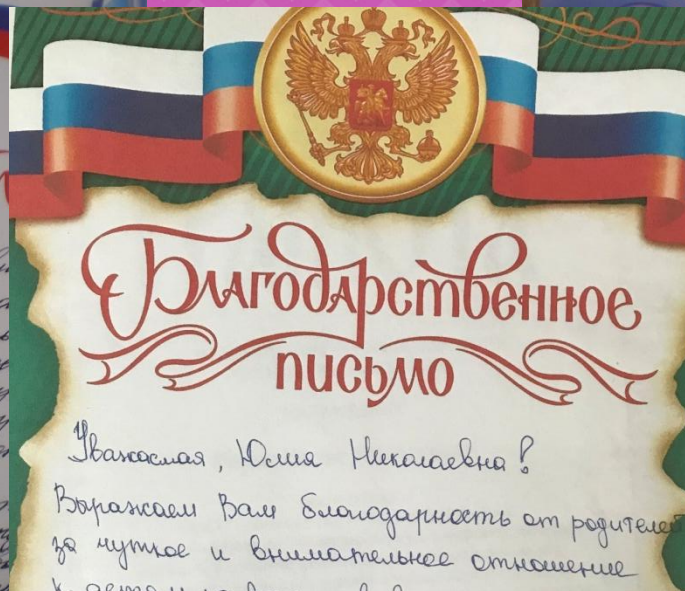 Благодарственное
письмо
Уважаемая, Юлия Николаевна!
Выражаем Вам благодарность от родителей
за чуткое и внимательное отношение
к детям